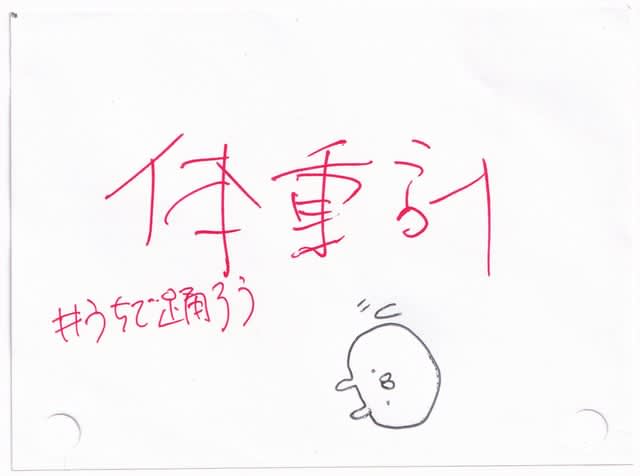 体重計
#うちで踊ろう